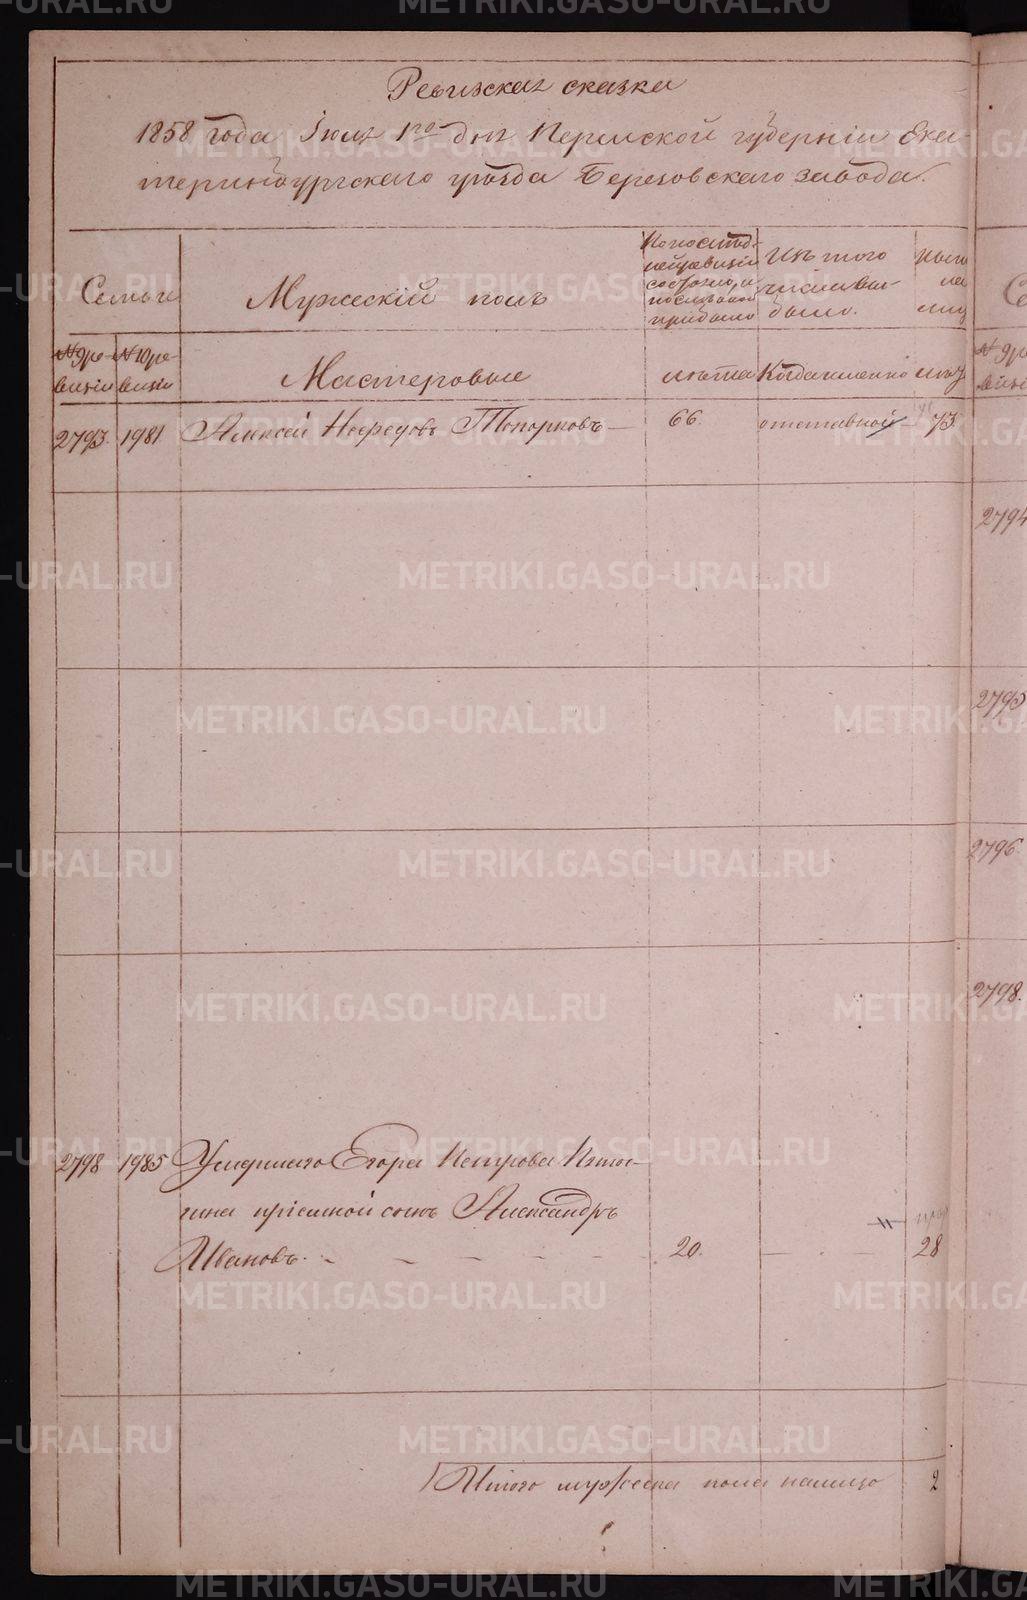 Ревизская сказка
1858 года Июля 1го дня Пермской губерніи Ека-
теринбургскаго уѣзда Березовскаго завода.
Семьи
Мужескій полъ
По послѣд-
ней ревизіи
состояло и
послѣ оной
прибыло
Изъ того
числа вы-
было.
Ныне
на
лиц
№ 9 ре-
визіи
№ 10 ре-
визіи
Мастеровые
лѣта
Когда именно
лѣт
2793. 1981 Алексей Нефедовъ Топорковъ 66. отставной 73.
2794
2795
2796.
2798.
2798 1985 Умершаго Егора Петрова
гина пріемной сынъ Александръ
Ивановъ. 20. 28
Итого мужеска пола налицо 2
METRIKI.GASO-URAL.RU